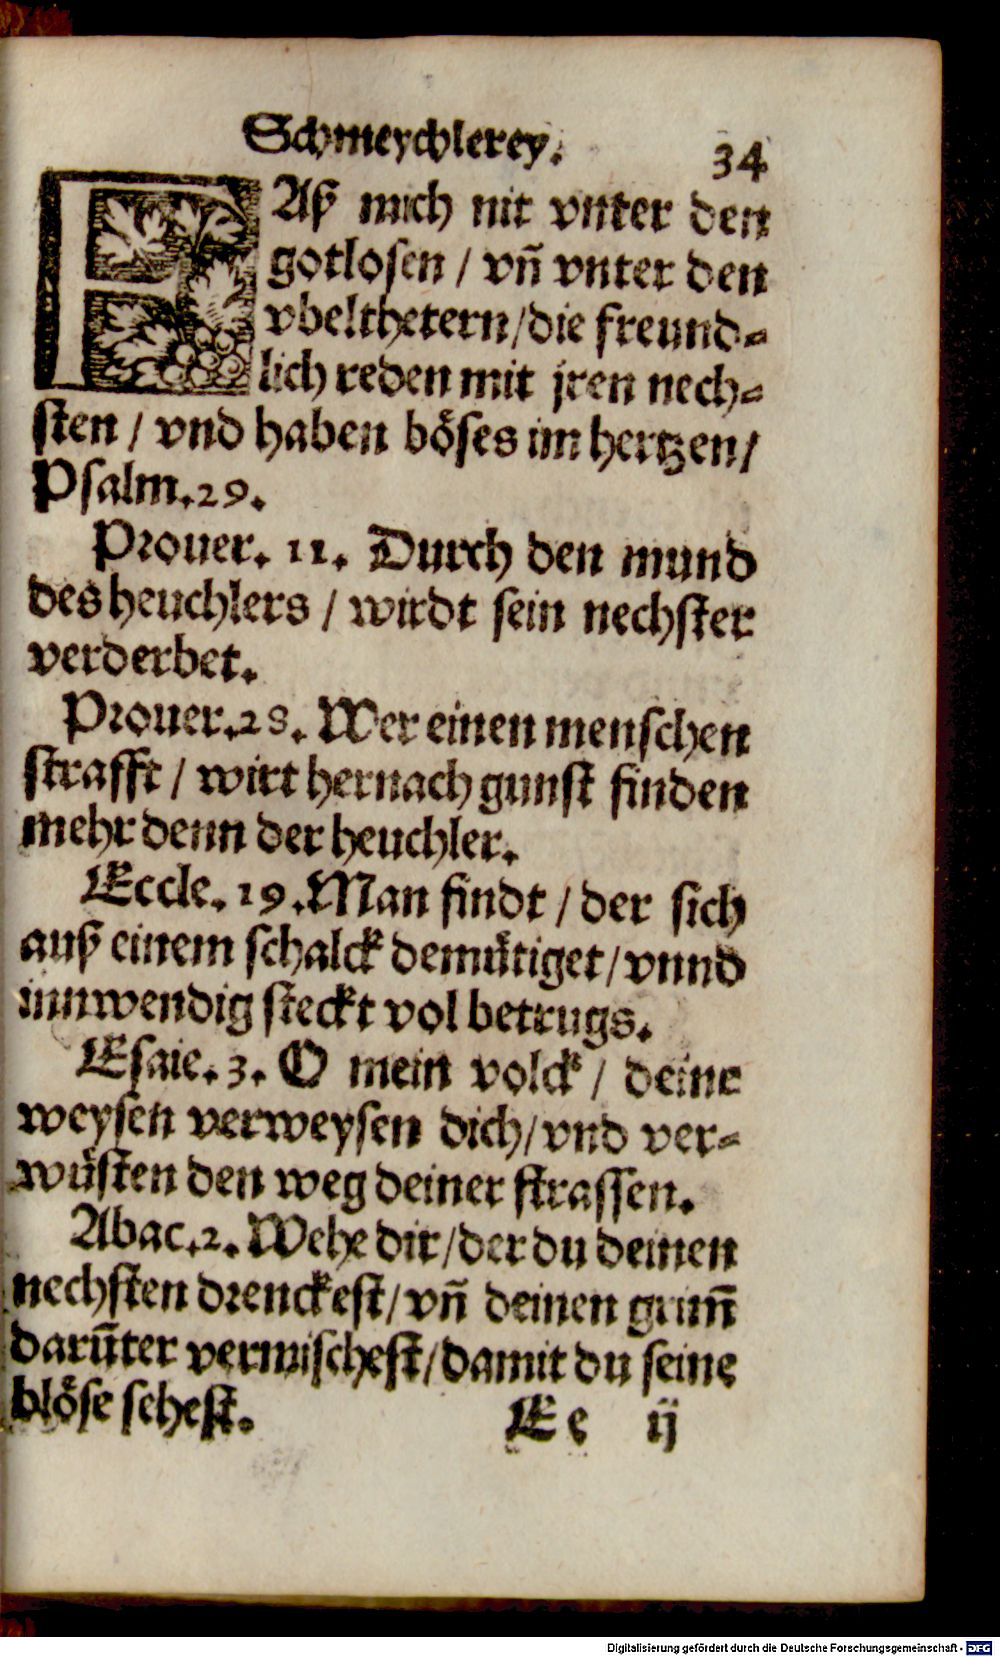 Schmeychlerey.
34
FAß mich nit vnter den
gotlosen / vn̄ vnter den
vbelthetern/die freund⸗
lich reden mit jren nech⸗
sten / vnd haben böses im hertzen/
Psalm.29.
Prouer. 11. Durch den mund
des heuchlers / wirdt sein nechster
verderbet.
Prouer.28. Wer einen menschen
strafft / wirt hernach gunst finden
mehr denn der heuchler.
Eccle. 19. Man findt / der sich
auß einem schalck demütiget/vnnd
innwendig steckt vol betrugs.
Esaie. 3. O mein volck / deine
weysen verweysen dich/vnd ver⸗
wüsten den weg deiner strassen.
Abac.2. Wehe dir/der du deinen
nechsten drenckest/vn̄ deinen grim̄
darūter vermischest/damit du seine
blöse sehest.
Ee ij
Digitalisierung gefördert durch die Deutsche Forschungsgemeinschaft - DFG